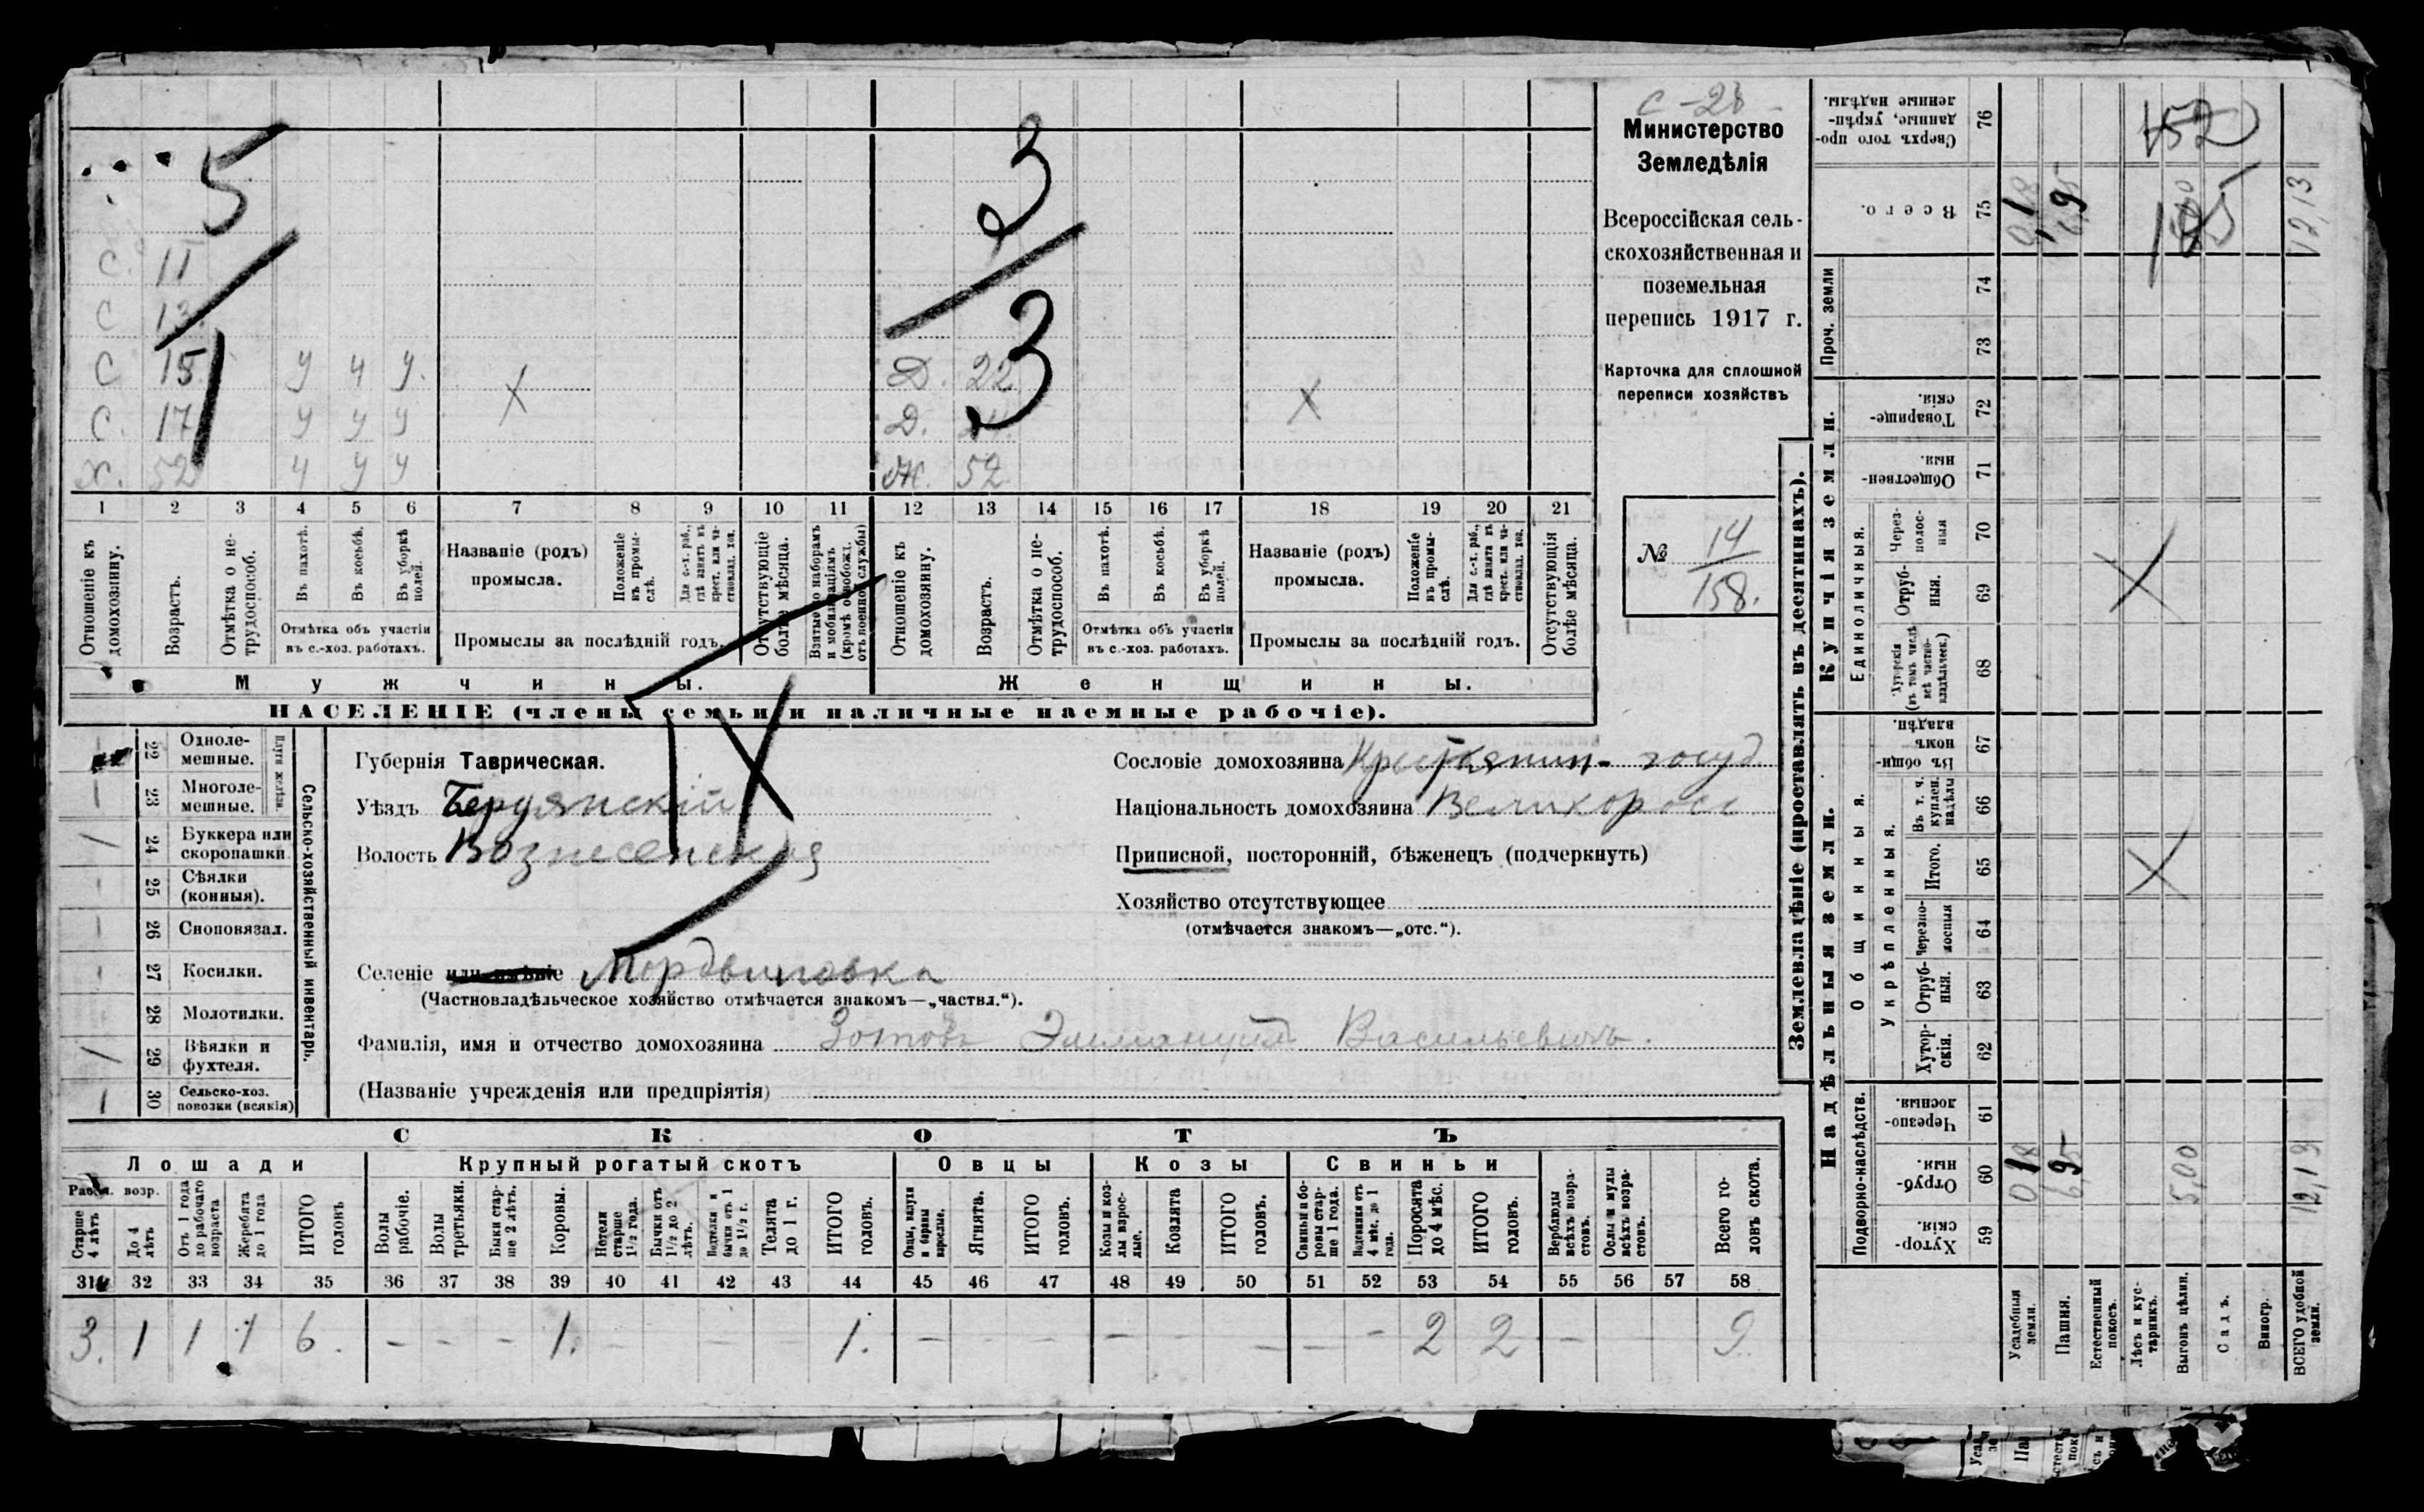 С -28
Министерство
Земледѣлія
Всероссійская сель-
скохозяйственная и
поземельная
перепись 1917 г.
Карточка для сплошной
переписи хозяйствъ
№ 14
158.
5
1
3
3
С. 11
С 13.
С 15. у ч у. X Д. 22
С. 17 у у у Д. X
Х. 52 ч у у Ж. 52
1 2 3 4 5 6 7 8 9 10 11 12 13 14 15 16 17 18 19 20 21
Отношеніе къ домохозяину.
Возрастъ.
Отмѣтка о не-
трудоспособ.
Въ пахотѣ.
Въ косьбѣ.
Въ уборкѣ полей.
Отмѣтка объ участіи
въ с.-хоз. работахъ.
Названіе (родъ)
промысла.
Положеніе въ промы-
слѣ.
Для с.-х. раб., гдѣ занятъ въ крест. или ча-
стновлад. хоз.
Промыслы за послѣдній годъ.
Отсутствующіе болѣе мѣсяца.
Взятые по наборамъ и мобилизаціямъ (кромѣ освобожд. отъ военной службы)
Отношеніе къ домохозяину.
Возрастъ.
Отмѣтка о не-
трудоспособ.
Въ пахотѣ.
Въ косьбѣ.
Въ уборкѣ полей.
Отмѣтка объ участіи
въ с.-хоз. работахъ.
Названіе (родъ)
промысла.
Положеніе въ промы-
слѣ.
Для с.-х. раб., гдѣ занята въ крест. или ча-
стновлад. хоз.
Промыслы за послѣдній годъ.
Отсутствующія болѣе мѣсяца.
Мужчины.
Женщины.
НАСЕЛЕНІЕ (члены семьи и наличные наемные рабочіе).
22 Одноле-
мешные.
23 Многоле-
мешные.
Плуги желѣзн.
24 Буккера или
скоропашки
25 Сѣялки
(конныя).
26 Сноповязал.
27 Косилки.
28 Молотилки.
29 Вѣялки и
фухтеля.
30 Сельско-хоз.
повозки (всякія)
Сельско-хозяйственный инвентарь.
Губернія Таврическая.
Уѣздъ Бердянскій
Волость Вознесенская
Сословіе домохозяина Крестьянин- госуд
Національность домохозяина Великоросс
Приписной, посторонній, бѣженецъ (подчеркнуть)
Хозяйство отсутствующее
(отмѣчается знакомъ—„отс.“).
Селеніе или имѣніе Мордвиновка
(Частновладѣльческое хозяйство отмѣчается знакомъ—„частвл.“).
Фамилія, имя и отчество домохозяина Зотовъ Эммануил Васильевичъ.
(Названіе учрежденія или предпріятія)
СКОТЪ
Лошади
Крупный рогатый скотъ
Овцы
Козы
Свиньи
Рабоч. возр.
Старше 4 лѣтъ
До 4 лѣтъ
Отъ 1 года до рабочаго возраста
Жеребята до 1 года
ИТОГО головъ
Волы рабочіе.
Волы третьяки.
Быки стар-
ше 2 лѣтъ.
Коровы.
Нетели старше 1½ года.
Бычки отъ 1½ до 2 лѣтъ.
Нетелки и бычки отъ 1 до 1½ г.
Телята до 1 г.
ИТОГО головъ.
Овцы, валухи и бараны взрослые.
Ягнята.
ИТОГО головъ.
Козы и коз-
лы взрос-
лые.
Козлята
ИТОГО головъ.
Свиньи и бо-
ровы стар-
ше 1 года.
Подсвинки отъ 4 мѣс. до 1 года.
Поросята до 4 мѣс.
ИТОГО головъ.
Верблюды всѣхъ возра-
стовъ.
Ослы и мулы всѣхъ возра-
стовъ.
Всего го-
ловъ скота.
31 32 33 34 35 36 37 38 39 40 41 42 43 44 45 46 47 48 49 50 51 52 53 54 55 56 57 58
3. 1 1 1 6. - - - 1. - - - 1. - - - - - - - - 2 2 - - 9.
Землевладѣніе (проставлять въ десятинахъ).
Надѣльныя земли.
Купчія земли.
Проч. земли
Сверхъ того про-
данные, укрѣп-
ленные надѣлы.
76
Всего.
75
74
73
Товарище-
скія.
72
Обществен-
ныя.
71
Единоличныя.
Через-
полос-
ныя
70
Отруб-
ныя.
69
Хуторскія (въ томъ числѣ всѣ частно-
владѣльческ.)
68
Общинныя.
Въ общин-
номъ
владѣн.
67
Въ т. ч. куплен. надѣлы
66
Укрѣпленныя.
Итого.
65
Черезпо-
лосныя
64
Отруб-
ныя.
63
Хутор-
скія.
62
Подворно-наслѣдств.
Черезпо-
лосныя.
61
Отруб-
ныя.
60
Хутор-
скія
59
Усадебныя земли.
Пашня.
Естественный покосъ.
Лѣсъ и кус-
тарникъ.
Выгонъ цѣлин.
Садъ.
Виногр.
ВСЕГО удобной земли.
0,18 6,95 5,00 12,13
0,18 6,95 12,13